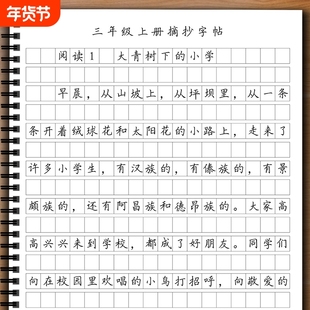 年货节
三年级上册摘抄字帖
阅读1 大青树下的小学
早晨，从山坡上，从坪坝里，从一条
条开着绒球花和太阳花的小路上，走来了
许多小学生，有汉族的，有傣族的，有景
颇族的，还有阿昌族和德昂族的。大家高
高兴兴来到学校，都成了好朋友。同学们
向在校园里欢唱的小鸟打招呼，向敬爱的